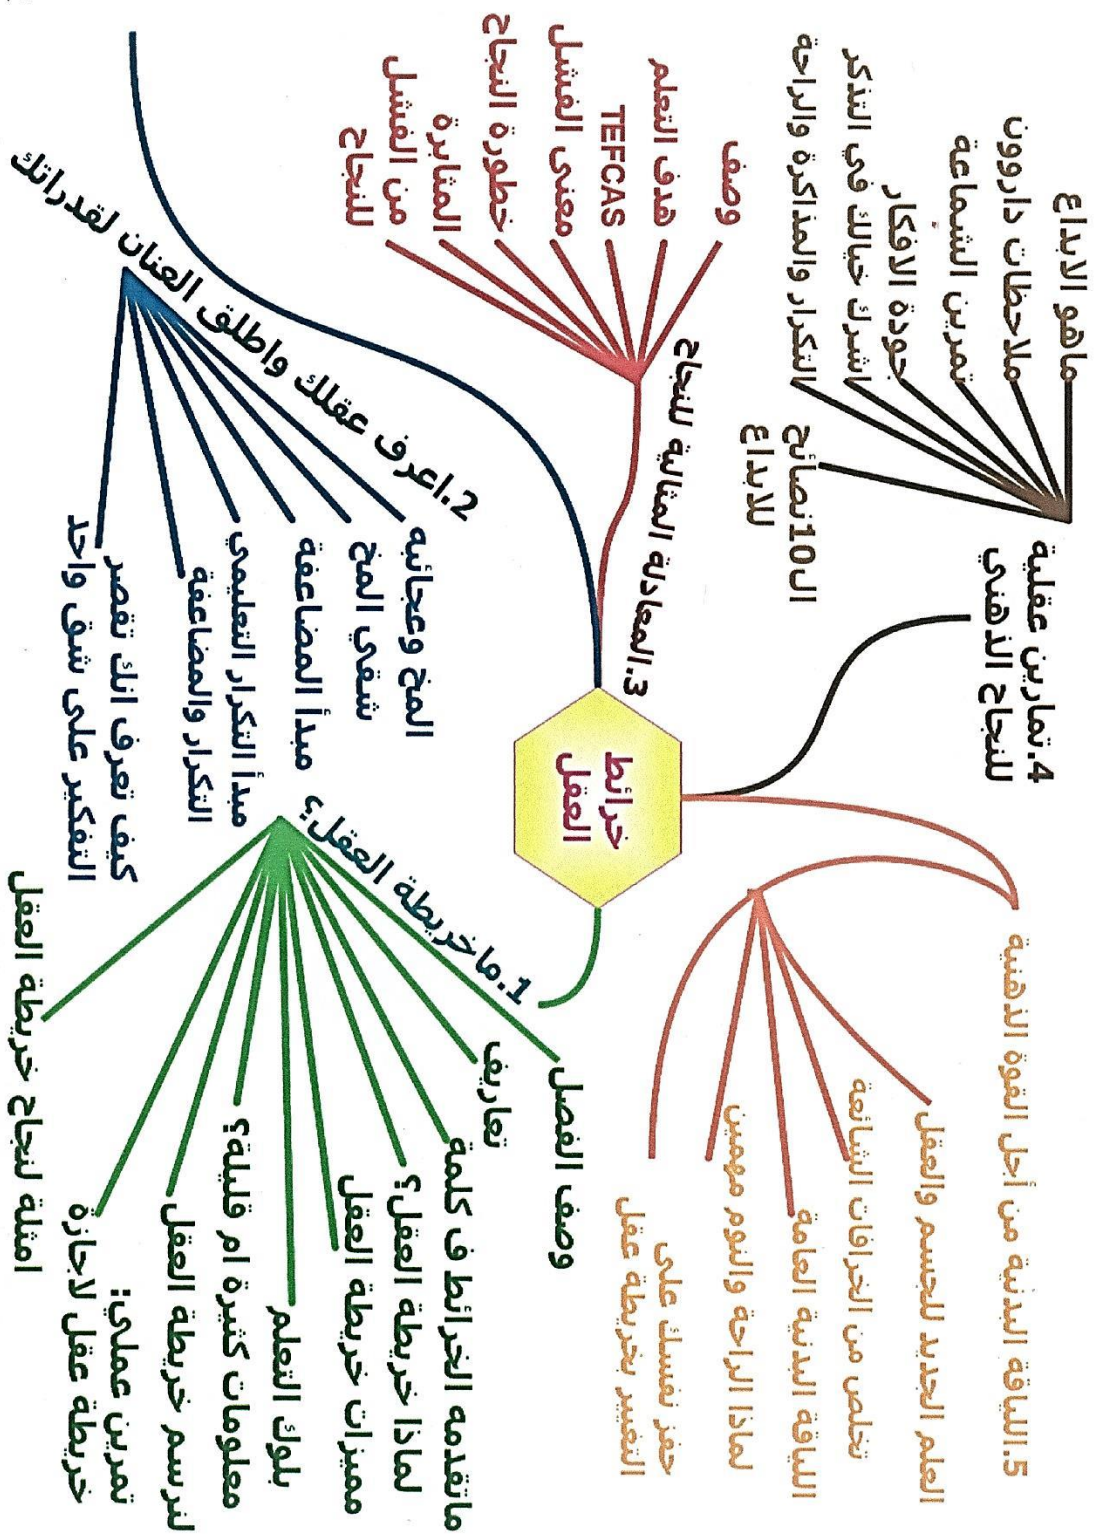 خرائط
العقل
1.ماخريطة العقل؟
وصف الفصل
تعاريف
ماتقدمه الخرائط ف كلمة
لماذا خريطة العقل؟
مميزات خريطة العقل
بلوك التعلم
معلومات كثيرة ام قليلة؟
لنرسم خريطة العقل
تمرين عملي:
خريطة عقل لاجازة
امثلة لنجاح خريطة العقل
2.اعرف عقلك واطلق العنان لقدراتك
المخ وعجائبه
شقي المخ
مبدأ المضاعفة
مبدأ التكرار التعليمي
التكرار والمضاعفة
كيف تعرف انك تقصر
التفكير على شق واحد
3.المعادلة المثالية للنجاح
وصف
هدف التعلم
TEFCAS
معنى الفشل
خطورة النجاح
المثابرة
من الفشل
للنجاح
4.تمارين عقلية
للنجاح الذهني
ماهو الابداع
ملاحظات داروون
تمرين الشماعة
جودة الافكار
اشرك خيالك في التذكر
التكرار والمذاكرة والراحة
ال10نصائح
للابداع
5.اللياقة البدنية من أجل القوة الذهنية
العلم الجديد للجسم والعقل
تخلص من الخرافات الشائعة
اللياقة البدنية العامة
لماذا الراحة والنوم مهمين
حفز نفسك على
التغيير بخريطة عقل